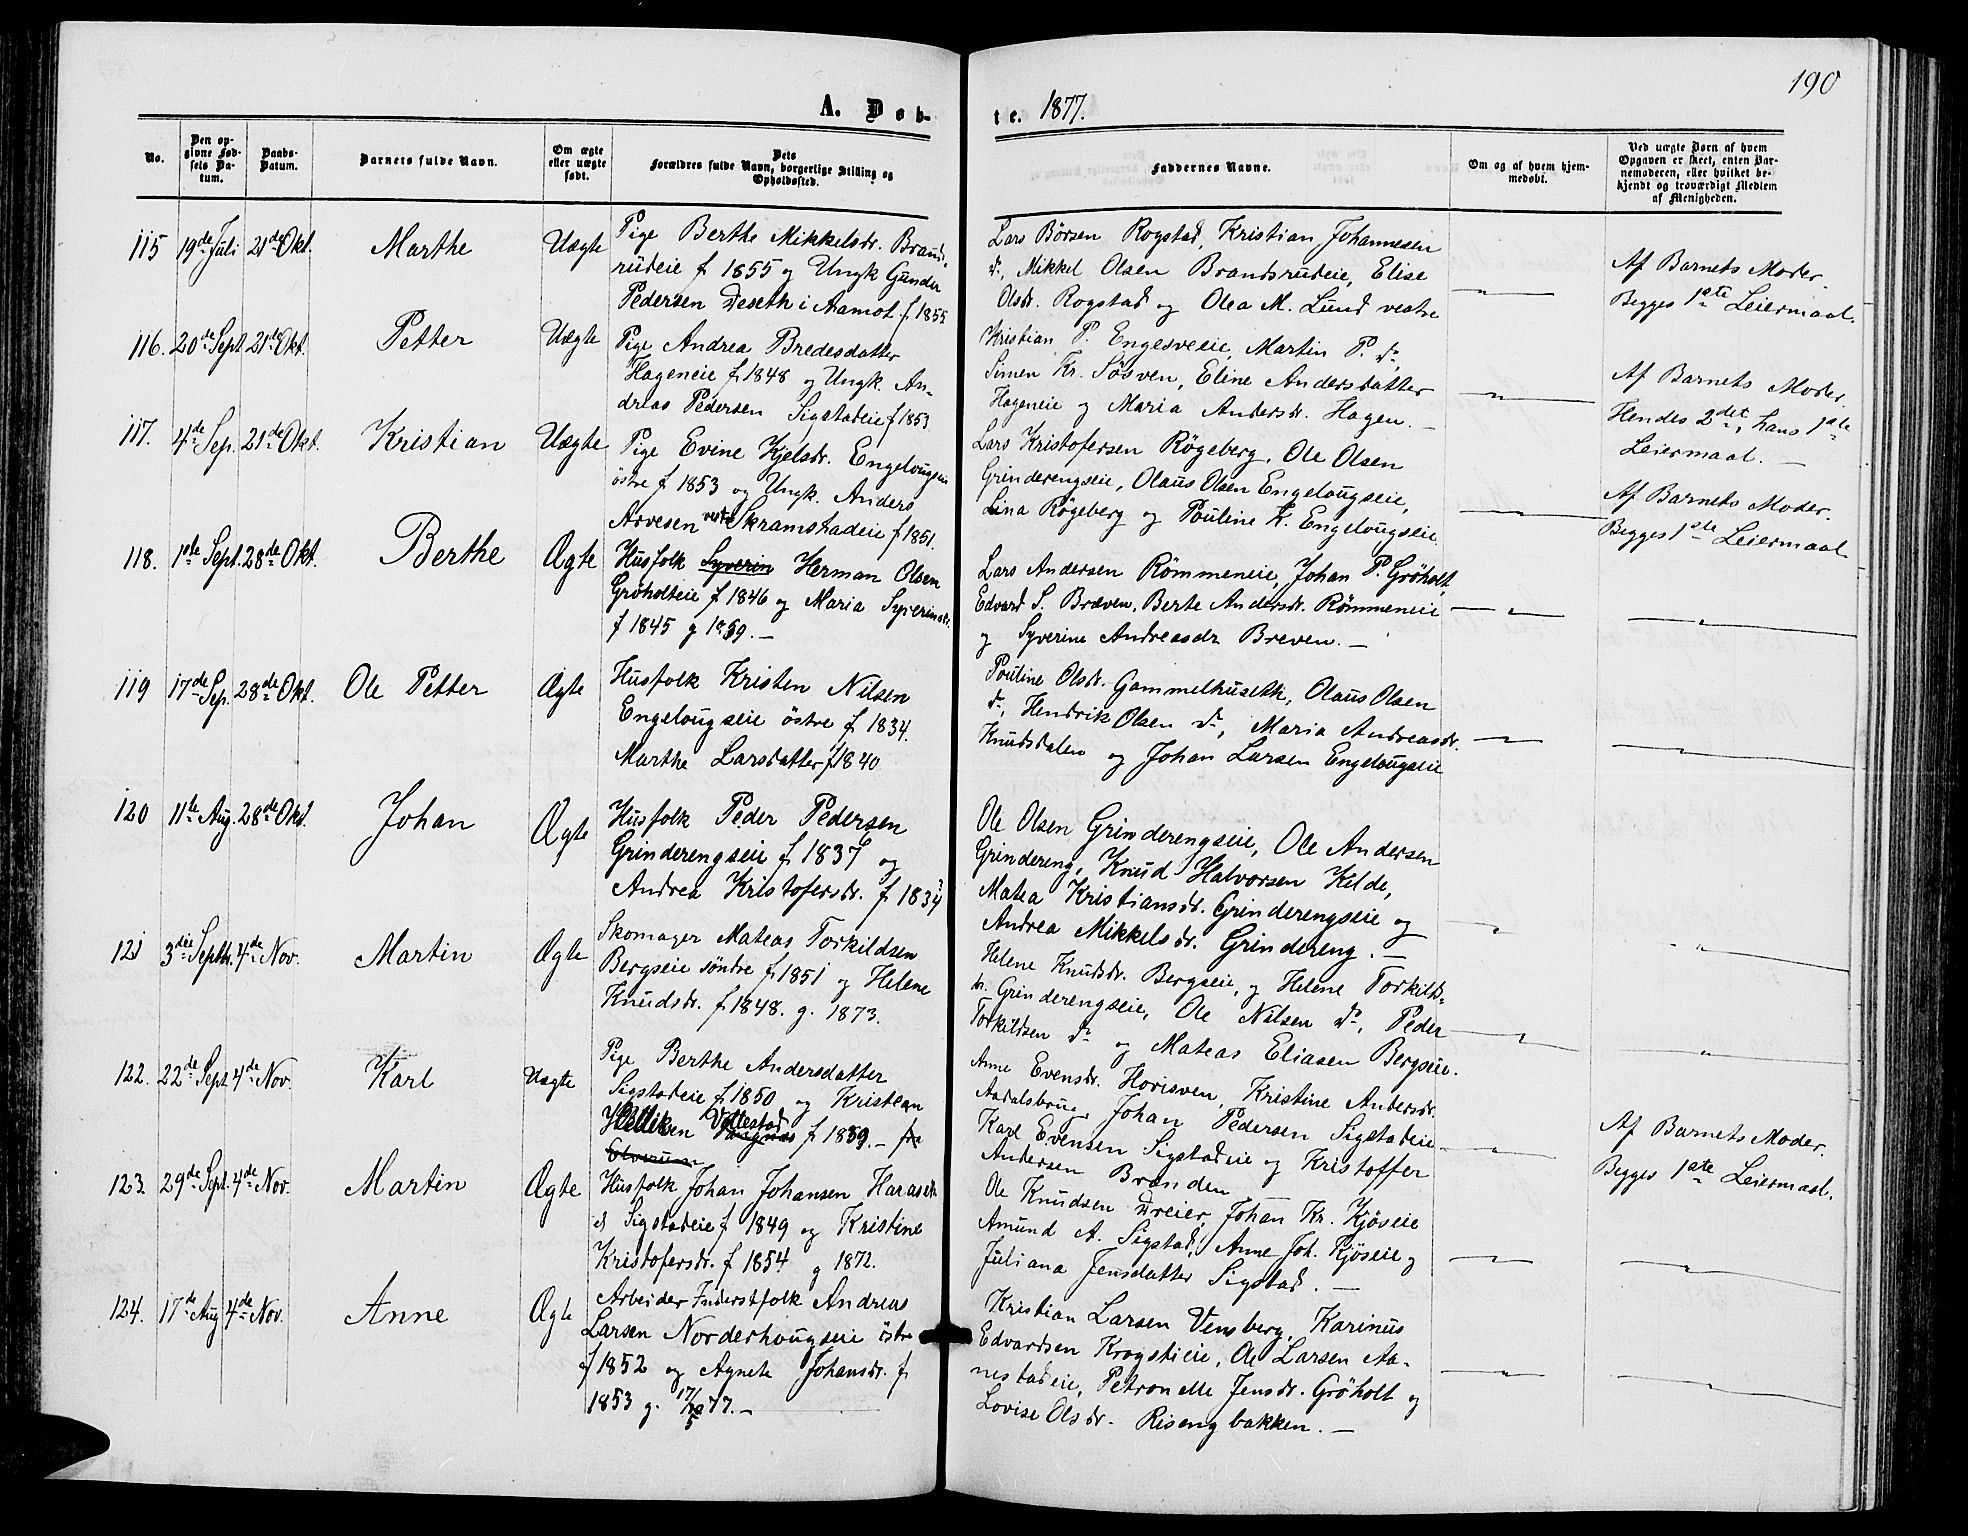 190
A. Døb-
te. 1877.
No.
Den op-
givne Fød-
sels Da-
tum.
Daabs-
Datum.
Barnets fulde Navn.
Om ægte
eller uægte
født.
Dets
Forældres fulde Navn, borgerlige Stilling og
Opholdssted.
Faddernes Navne.
Om og af hvem hjem-
medøbt.
Ved uægte Børn af hvem
Opgaven er skeet, enten Bar-
nemoderen, eller hvilket be-
kjendt og troværdigt Medlem
af Menigheden.
115 19de Juli 21de Okt. Marthe Uægte
Pige Berthe Mikkelsdr. Brand-
rudeie f 1855 og Ungk Gunder
Pedersen Deseth i Aamot f 1855
Lars Börsen Rogstad, Kristian Johannesen
do, Mikkel Olsen Brandsrudeie, Elise
Olsdr. Rogstad og Olea M. Lund vestre
Af Barnets Moder.
Begges 1ste Leiermaal.
116. 20de Sept 21de Okt. Petter Uægte
Pige Andrea Bredesdatter
Hageneie f 1848 og Ungk. An-
dreas Pedersen Sigstadeie f 1853
Kristian P. Engesveeie, Martin P. do,
Simen Kr. Søsven, Eline Andersdatter
Hageneie og Maria Andersdr. Hagen. -
Af Barnets Moder.
Hendes 2det, hans 1ste
Leiermaal. -
117. 4de Sep. 21de Okt. Kristian Uægte
Pige Evine Kjelsdr. Engelougseie
östre f 1853 og Ungk. Anders
Arvesen vestre Skramstadeie f 1851.
Lars Kristofersen Røgeberg, Ole Olsen
Grinderengseie, Olaus Olsen Engelougseie,
Lina Røgeberg og Pouline K. Engelougseie.
Af Barnets Moder.
Begges 1ste Leiermaal
118. 1ste Sept. 28de Okt. Berthe Ægte
Husfolk Syverin Herman Olsen
Grøholteie f 1846 og Maria Syverinsdr.
f 1845 g 1869. -
Lars Andersen Römmeneie, Johan P. Gröholt,
Edvard S. Bræven, Berte Andersdr. Römmeneie
og Syverine Andreasdr Breven. -
119 17de Sep. 28de Okt. Ole Petter Ægte
Husfolk Kristen Nilsen
Engelougseie östre f 1834.
Marthe Larsdatter f 1840
Pouline Olsdr. Gammelhusetk, Olaus Olsen
do, Hendrik Olsen do, Maria Andreasdr.
Knudsdalen og Johan Larsen Engelougseie
120 11te Aug. 28de Okt. Johan Ægte
Husfolk Peder Pedersen
Grinderengseie f 1837 og
Andrea Kristofersdr. f 1834
Ole Olsen Grinderengseie, Ole Andersen
Grindereng, Knud Halvorsen Kilde,
Matea Kristiansdr. Grinderengseie og
Andrea Mikkelsdr. Grindereng. -
121 3die Septbr. 4de Nov. Martin Ægte
Skomager Mateas Torkildsen
Bergseie söndre f 1851 og Helene
Knudsdr. f 1848. g. 1873.
Helene Knudsdr. Bergseie, og Helene Torkilds-
dr. Grinderengseie, Ole Nilsen do, Peder
Torkildsen do og Mateas Eliasen Bergseie.
122. 22de Sept 4de Nov. Karl Uægte
Pige Berthe Andersdatter
Sigstadeie f 1850 og Kristian
Velt­estad f 1859. - fra
Elverum
Anne Evensdr. Horisven, Kristine Andersdr.
Aadalsbrug, Johan Pedersen Sigstadeie
Karl Evensen Sigstadeie og Kristoffer
Andersen Branden
Af Barnets Moder.
Begges 1ste Leiermaal.
123. 29de Sept. 4de Nov. Martin Ægte
Husfolk Johan Johansen Haraset
Sigstadeie f 1849 og Kristine
Kristofersdr. f 1854 g 1872.
Ole Knudsen Dreier, Johan Kr. Kjöseie
Amund A. Sigstad, Anne Joh. Kjöseie og
Juliana Jensdatter Sigstad. -
124. 17de Aug 4de Nov. Anne Ægte
Arbeider Inderstfolk Andreas
Larsen Norderhougseie östre
f 1852 og Agnete Johansdr. f
1853 g. 77. -
Kristian Larsen Vensberg, Karinus
Edvardsen Krogstieie, Ole Larsen Aa-
nestadeie, Petronelle Jensdr. Gröholt og
Lovise Olsdr. Risengbakken. -